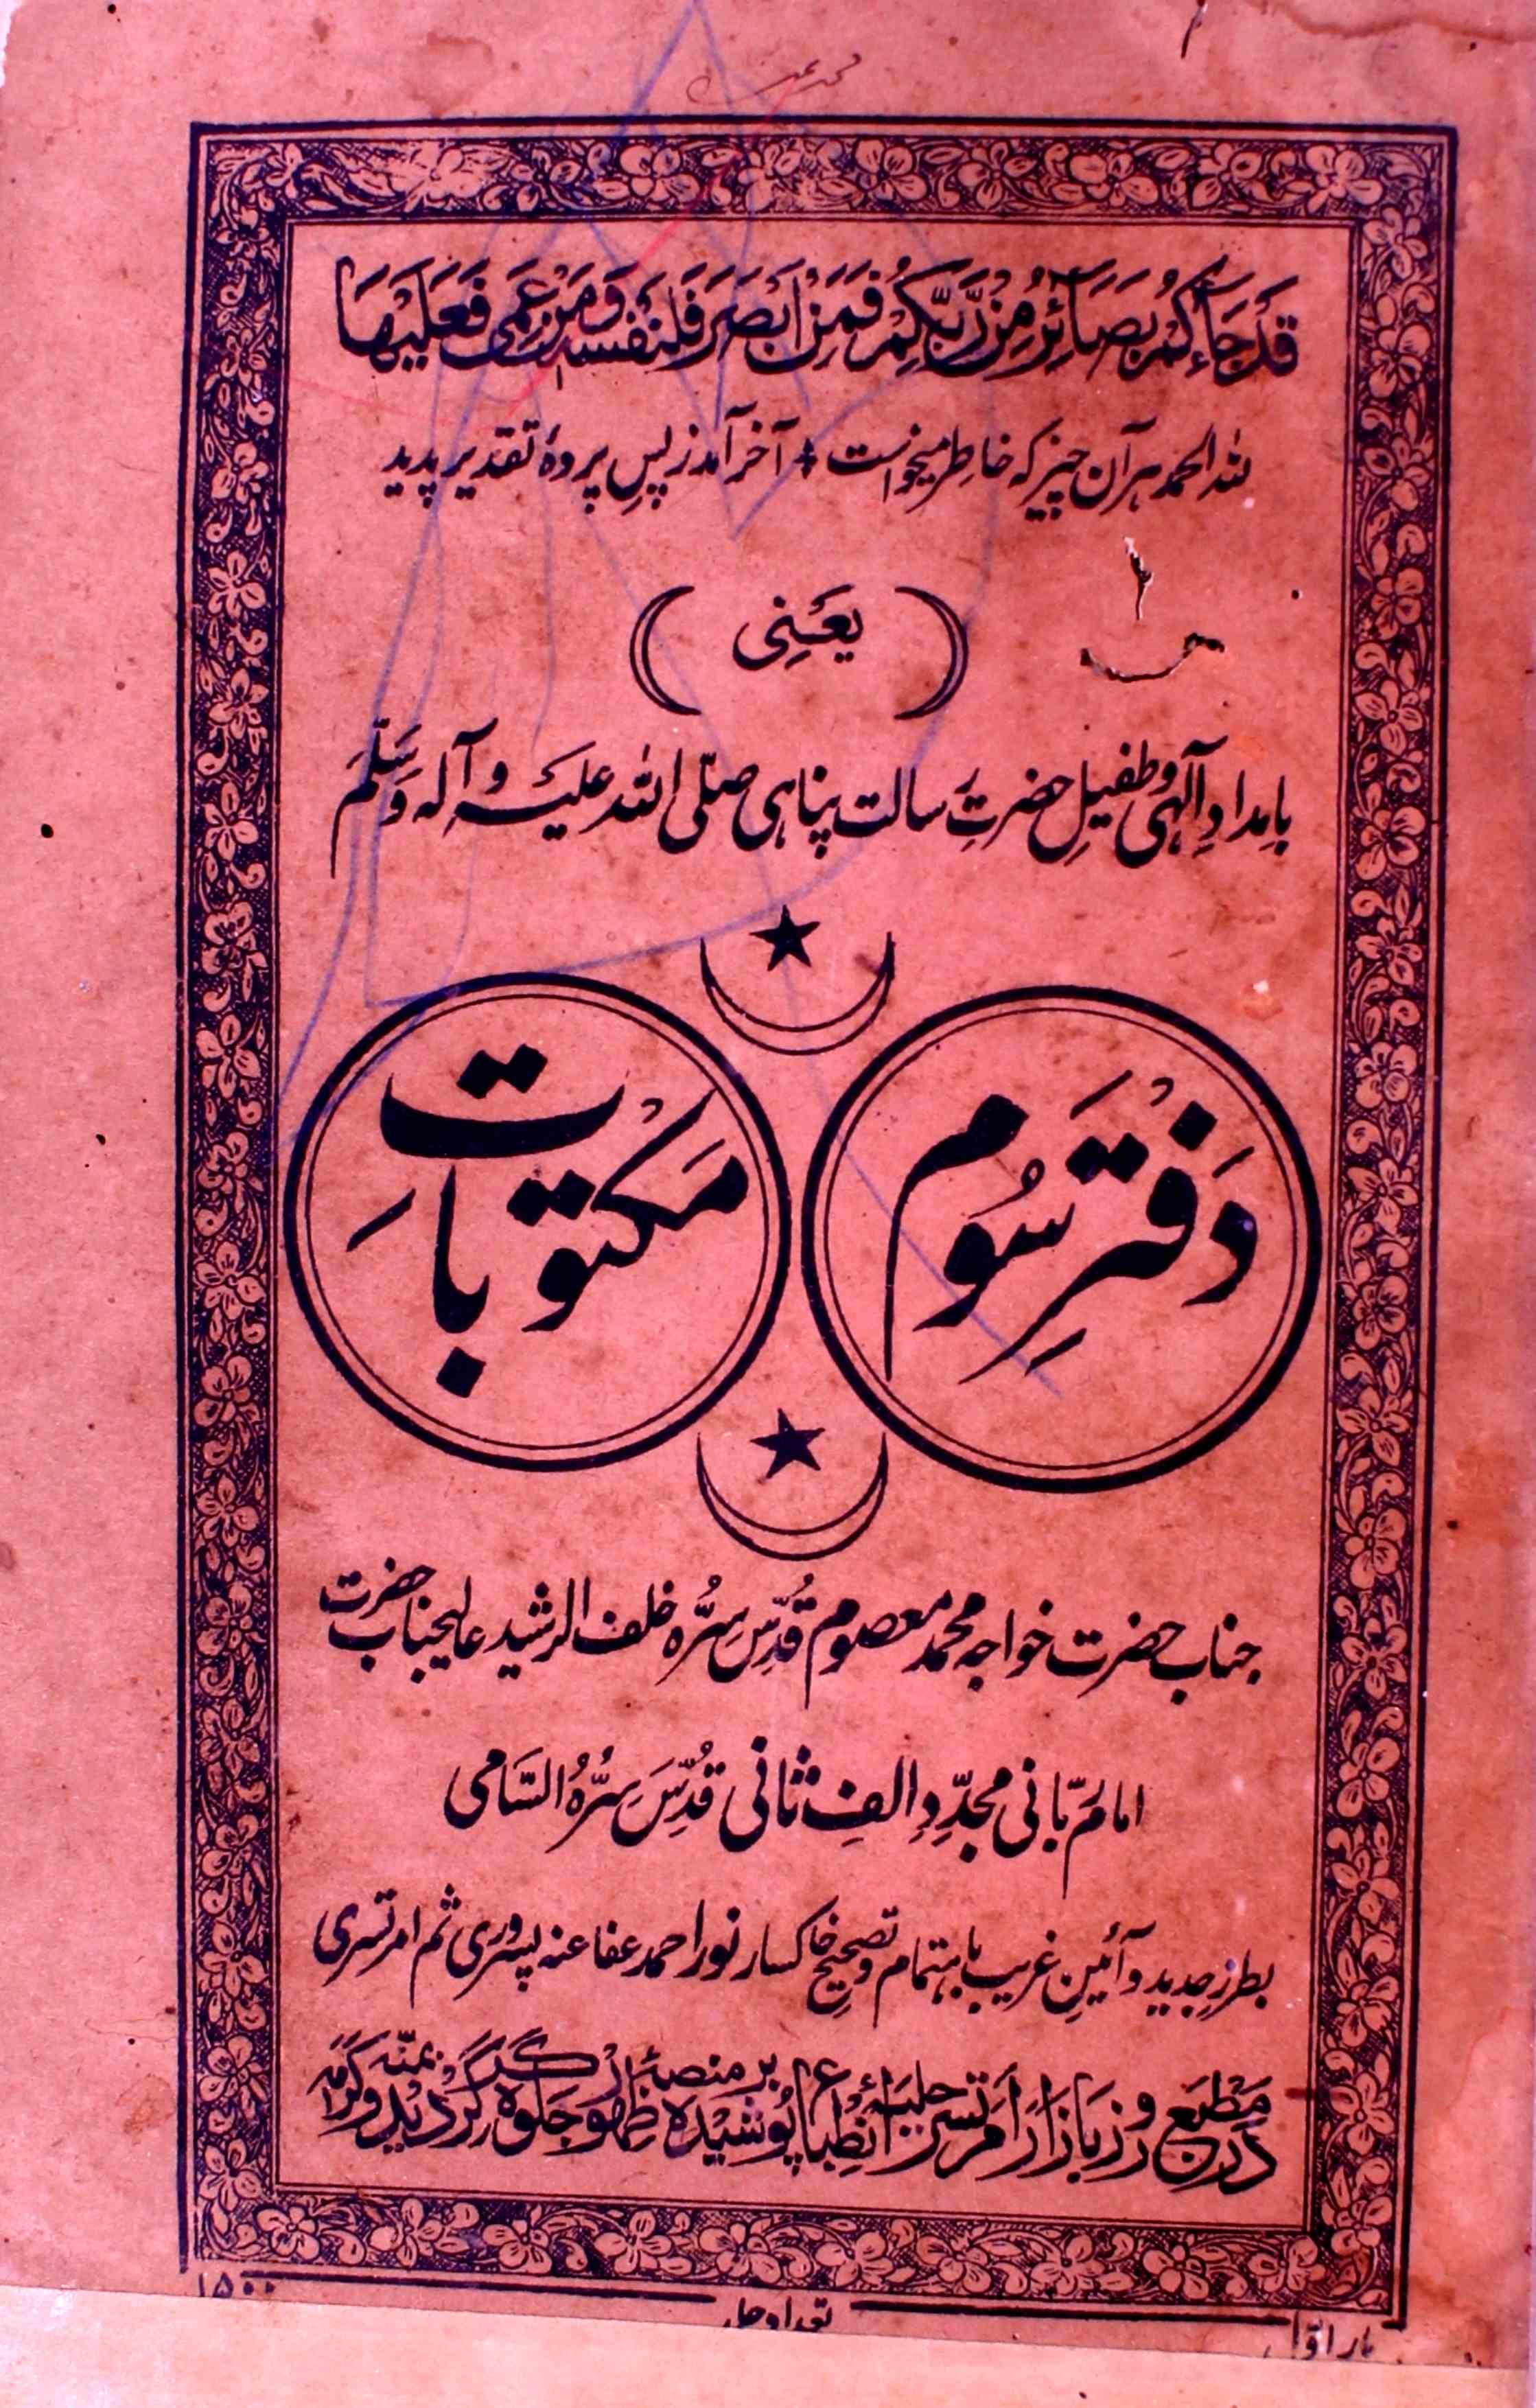 قَدْ جَآءَكُمْ بَصَآئِرُ مِنْ رَّبِّكُمْ فَمَنْ اَبْصَرَ فَلِنَفْسِهٖ وَمَنْ عَمِیَ فَعَلَیْهَا
للہ الحمد ہر آن چیز کہ خاطر میخواست * آخر آمد ز پسِ پردۂ تقدیر پدید
(یَعْنِی)
بامدادِ آلٰہی و طفیلِ حضرتِ رسالت پناہی صلّی اللہ علیہ و آلہ وَسَلَّمَ
دَفْتَرِ سُوُم
مَکْتُوباتِ
جناب حضرت خواجہ محمد معصوم قُدِّس سِرُّہ خلف الرشید عالیجناب حضرت
امام ربّانی مجدّدِ الفِ ثانی قُدِّسَ سِرُّہُ السَّامی
بطرزِ جدید و آئینِ غریب باہتمام و تصحیحِ خاکسار نور احمد عفا عنہ پسروری ثم امرتسری
دَرْ مَطْبَع روز بَازَار اَمْرَتْسَر حلیۂ اِنْطِبَاع پُوشِیْدَہ بر منصۂ ظہور جَلوَہ گَر گَرْدِیْد بمنّہ وکَرَمِہ
بار اوّل
تعداد جلد
۱۵۰۰